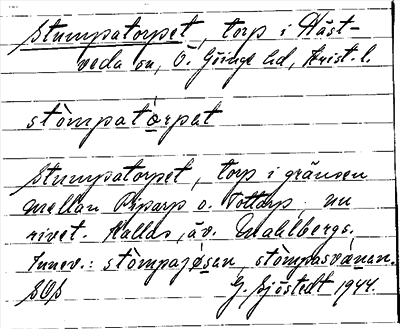 Stumpatorpet, torp i Häst-
veda sn, Ö. Göinge hd, Krist. l.
stòmpatǫrpet
Stumpatorpet, torp i gränsen
mellan Röparp o. Tottarp, nu
rivet. Kallas, äv. Mahlbergs.
Innev.: stòmpajǫsan, stòmpasvánan.
G. Sjöstedt 1944.